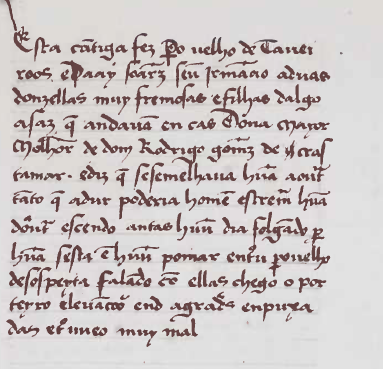 Esta cãtiga fez Po uelho de Tauei
roos. e Paay soarz seu Irmãao a duas
donzellas muy fremosas e filhas dalgo
asaz q̃ andauã en cas dona Mayor
Molher de dom Rodrigo gomz de tras
tamar. e diz q̃ se semelhaua hũa aout̃
tãto q̃ adur poderia homẽ estremr̃ hũa
dout̃ e seendo antas hũu dia folgãdo p
hũa sesta ẽ hũu pomar entou po uelho
de sospeyta falãdo cõ ellas chego o por
teyro e leuantoo end a grãds enpuxa
das et ouueo muy mal